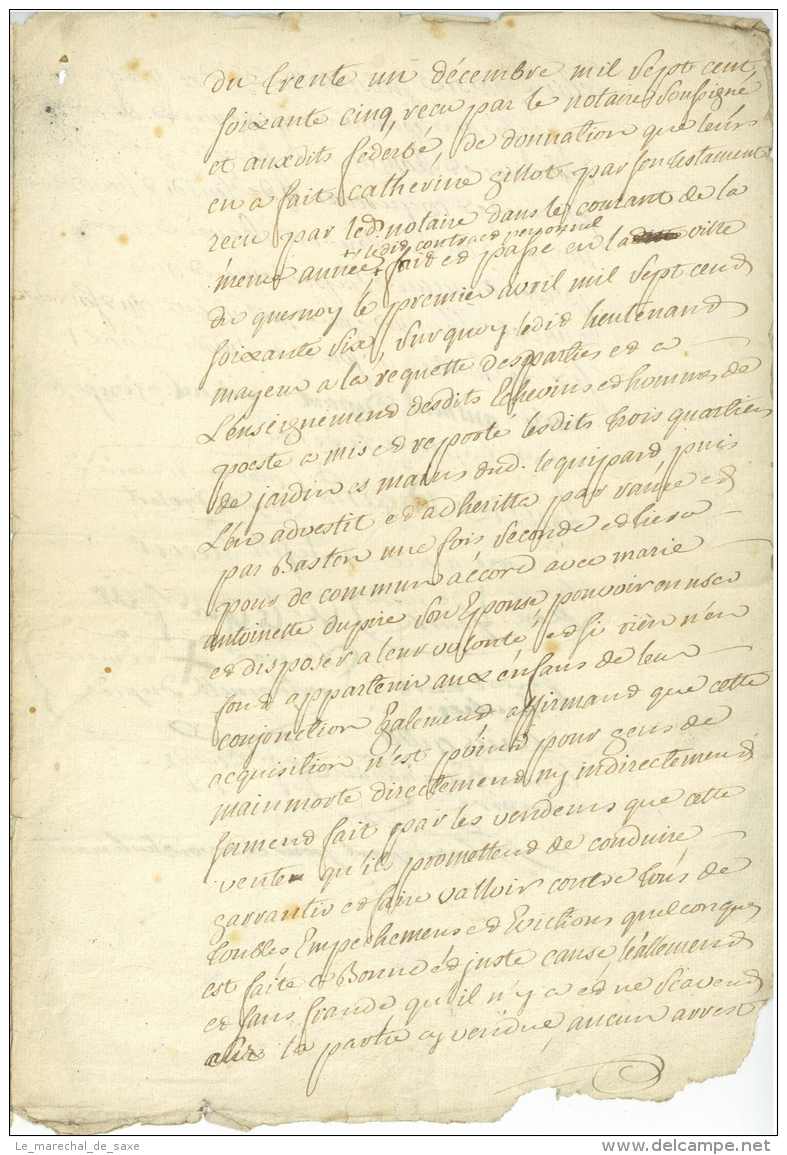 du trente un décembre mil sept cent
soixante cinq, recu par le notaire soussigné
et auxdits federbé, de donnation que leurs
en a fait Catherine Gillot par son testament
recu par led. notaire dans le courant de la
+ ledit contract personnel
meme année + fait et passe en la ville
du quesnoy le premier avril mil sept cent
soixante six, surquoy ledit lieutenand
mayeur a la requette desparties et a
L'enseignement desdits Echevins et hommes de
poeste a mis et reporté lesdits trois quartiers
de jardin es mains dud. lequipard, puis
L'en advestit et adheritta par rainée et
par Baston une fois seconde et tierce
pour de commun accord avec marie
antoinette dupire son Epouse pouvoir en user
et disposer a leur volonté et si rien n'en
font appartenir aux enfans de leur
conjonction Egalement affirmand que cette
acquisition n'est point pour gens de
main morte directement ny indirectement
serment fait par les vendeurs que cette
vente qu'il promettent de conduire
garrantir et faire valloir contre tous de
touttes Empechemens et Evictions quelconques
est faite a Bonne et juste cause, leallement
et sans fraude qu'il n'y a et ne scavent
sur la partie cy vendue, aucun arrest
Le_marechal_de_saxe
www.delcampe.net